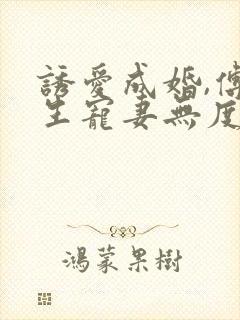 誘愛成婚,傅
生寵妻無度
鴻蒙果樹